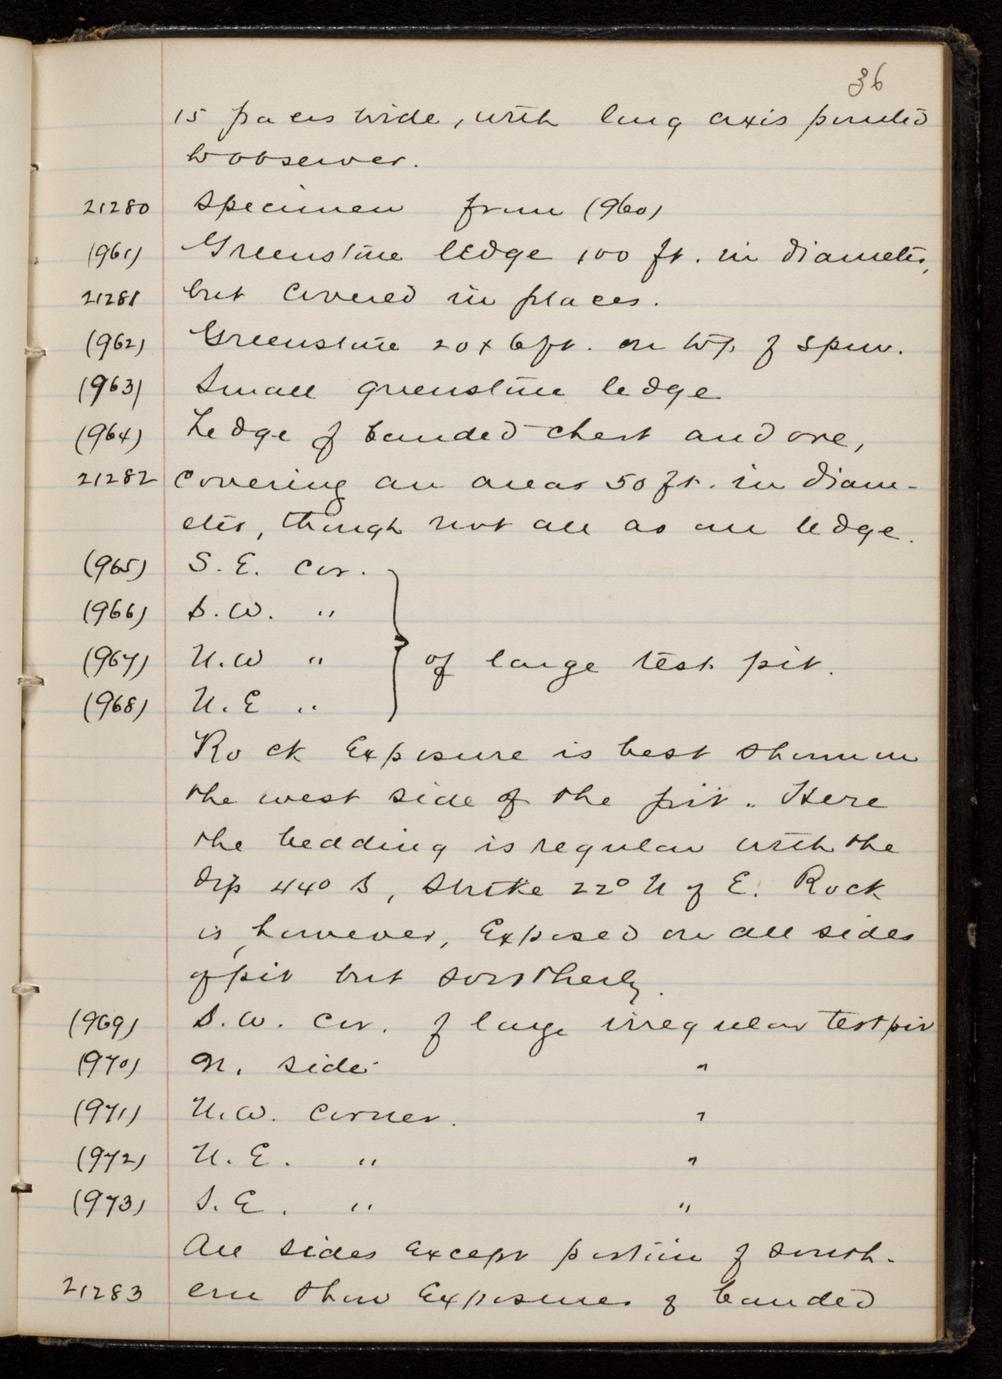 36
15 paces wide, with long axis pointed
to observer.
21280 Specimen from (960)
(961) Greenstone ledge 100 ft. in diameter,
21281 but covered in places.
(962) Greenstone 20 x 6 ft. on top of spur.
(963) Small greenstone ledge
(964) Ledge of banded chert and ore,
21282 covering an area 50 ft. in diam-
eter, though not all as an ledge.
(965) S. E. cor.
(966) S. W. "
(967) N. W "
of large test pit.
(968) N. E "
Rock exposure is best shown on
the west side of the pit. Here
the bedding is regular with the
dip 44° S, strike 22° N of E. Rock
is, however, exposed on all sides
of pit but southerly.
(969) S. W. cor. of large irregular test pit
(970) N. side "
(971) N. W. corner. "
(972) N. E. " "
(973) S. E. " "
All sides except portion of south-
21283 ern show exposures of banded